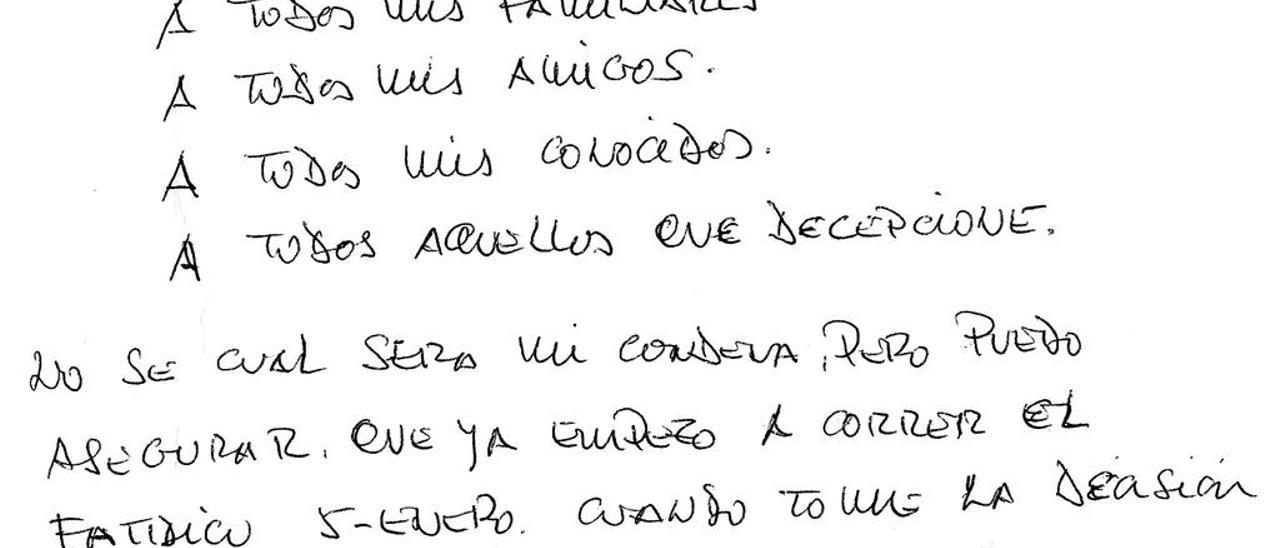 A TODOS mis FAMILIARES
A TODOS mis AMIGOS.
A TODOS mis CONOCIDOS.
A TODOS AQUELLOS QUE DECEPCIONE.
NO SE CUAL SERA mi CONDENA, PERO PUEDO
ASEGURAR, QUE YA EMPEZO A CORRER EL
FATIDICO 5-ENERO. CUANDO TOME LA DECISIÓN